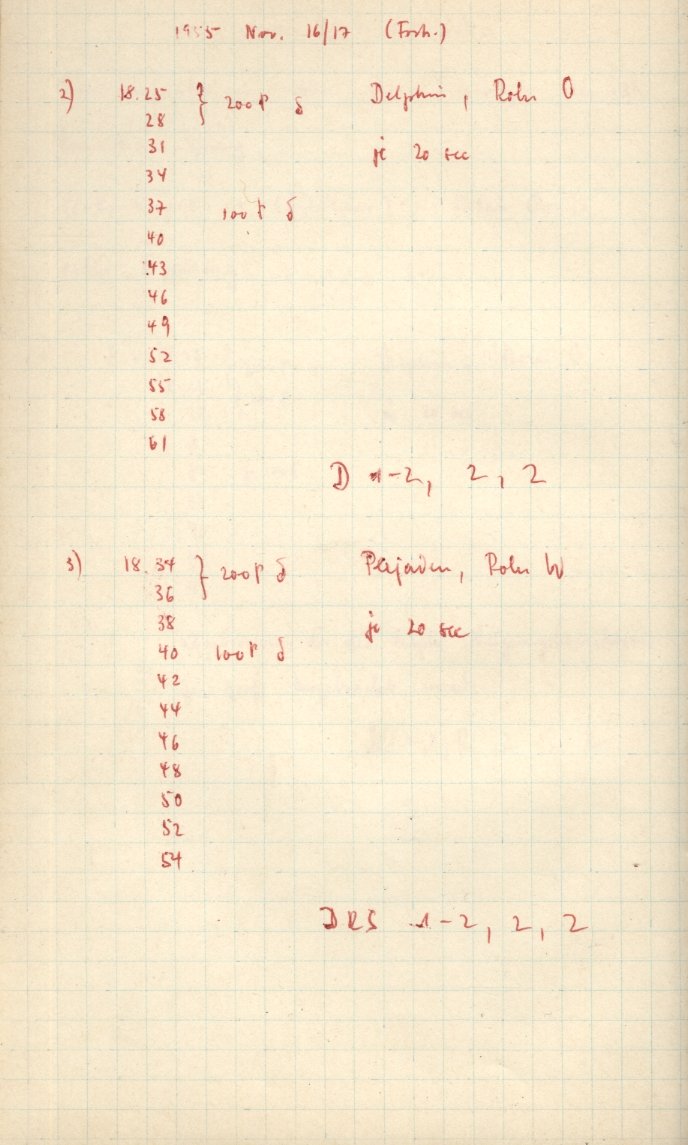 1955 Nov. 16/17 (Forts.)
2) 18.25 } 200 P δ Delphin, Rohr O
28
31 je 20 sec
34
37 100 P δ
40
43
46
49
52
55
58
61
D 1-2, 2, 2
3) 18.34 } 200 P δ Plejaden, Rohr W
36
38 je 20 sec
40 100 P δ
42
44
46
48
50
52
54
DRS 1-2, 2, 2